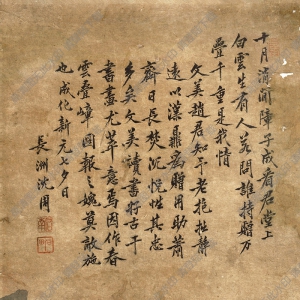 十月清闲陣子成看君堂上
白雲生有人若問誰持贈万
疊千重是我情
文美趙君知予老拖拙
遠以漢鼎為贈用助蕭
齋日長焚沉悦性其忠
多矣文美讀書好古于
書畫尤萃意焉因作春
雲疊嶂圖報之媿莫敵施
也成化新元七夕日
長洲沈周